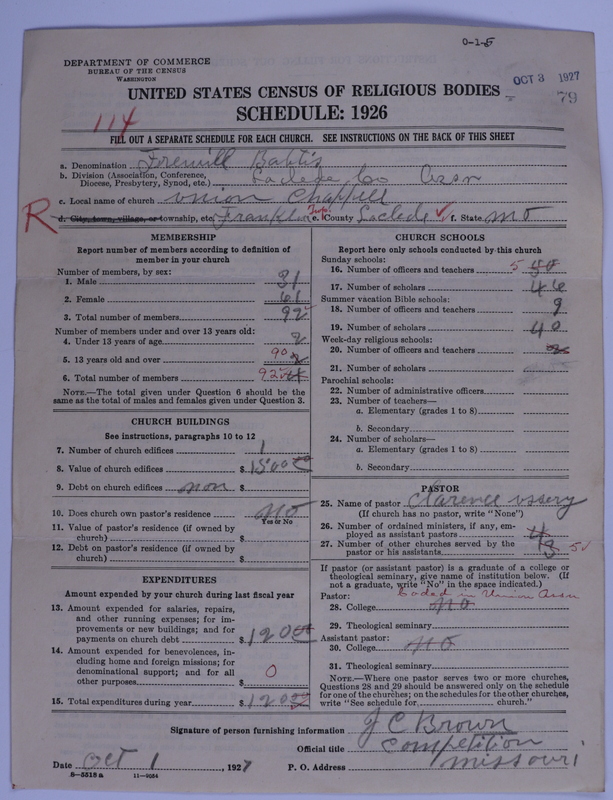 0-1-5
DEPARTMENT OF COMMERCE
BUREAU OF THE CENSUS
WASHINGTON
OCT 3 1927
79
UNITED STATES CENSUS OF RELIGIOUS BODIES
SCHEDULE: 1926
114
FILL OUT A SEPARATE SCHEDULE FOR EACH CHURCH. SEE INSTRUCTIONS ON THE BACK OF THIS SHEET
a. Denomination Freewill Babtis
b. Division (Association, Conference,
Diocese, Presbytery, Synod, etc.) Laclede Co Assn
c. Local name of church Union Chappell
R d. City, town, village, or township, etc. Franklin Twp. e. County Laclede f. State Mo
MEMBERSHIP
Report number of members according to definition of
member in your church
Number of members, by sex:
1. Male 31
2. Female 61
3. Total number of members 92
Number of members under and over 13 years old:
4. Under 13 years of age 2
5. 13 years old and over 90
6. Total number of members 92
NOTE.—The total given under Question 6 should be the
same as the total of males and females given under Question 3.
CHURCH BUILDINGS
See instructions, paragraphs 10 to 12
7. Number of church edifices 1
8. Value of church edifices $1500
9. Debt on church edifices non $
10. Does church own pastor's residence no
Yes or No
11. Value of pastor's residence (if owned by
church) $
12. Debt on pastor's residence (if owned by
church) $
EXPENDITURES
Amount expended by your church during last fiscal year
13. Amount expended for salaries, repairs,
and other running expenses; for im-
provements or new buildings; and for
payments on church debt $120
14. Amount expended for benevolences, in-
cluding home and foreign missions; for
denominational support; and for all
other purposes $ 0
15. Total expenditures during year $120
CHURCH SCHOOLS
Report here only schools conducted by this church
Sunday schools:
16. Number of officers and teachers 5
17. Number of scholars 46
Summer vacation Bible schools:
18. Number of officers and teachers 9
19. Number of scholars 40
Week-day religious schools:
20. Number of officers and teachers
21. Number of scholars
Parochial schools:
22. Number of administrative officers
23. Number of teachers—
a. Elementary (grades 1 to 8)
b. Secondary
24. Number of scholars—
a. Elementary (grades 1 to 8)
b. Secondary
PASTOR
25. Name of pastor Clarence Ussery
(If church has no pastor, write "None")
26. Number of ordained ministers, if any, em-
ployed as assistant pastors
27. Number of other churches served by the
pastor or his assistants 3
If pastor (or assistant pastor) is a graduate of a college or
theological seminary, give name of institution below. (If
not a graduate, write "No" in the space indicated.)
Pastor: Coded in Union Assn
28. College no
29. Theological seminary
Assistant pastor:
30. College no
31. Theological seminary
NOTE.—Where one pastor serves two or more churches,
Questions 28 and 29 should be answered only on the schedule
for one of the churches; on the schedules for the other churches,
write "See schedule for church."
Signature of person furnishing information J C Brown
Official title Competition
Date Oct 1, 1927 P. O. Address Missouri
8—5518a 11—9084